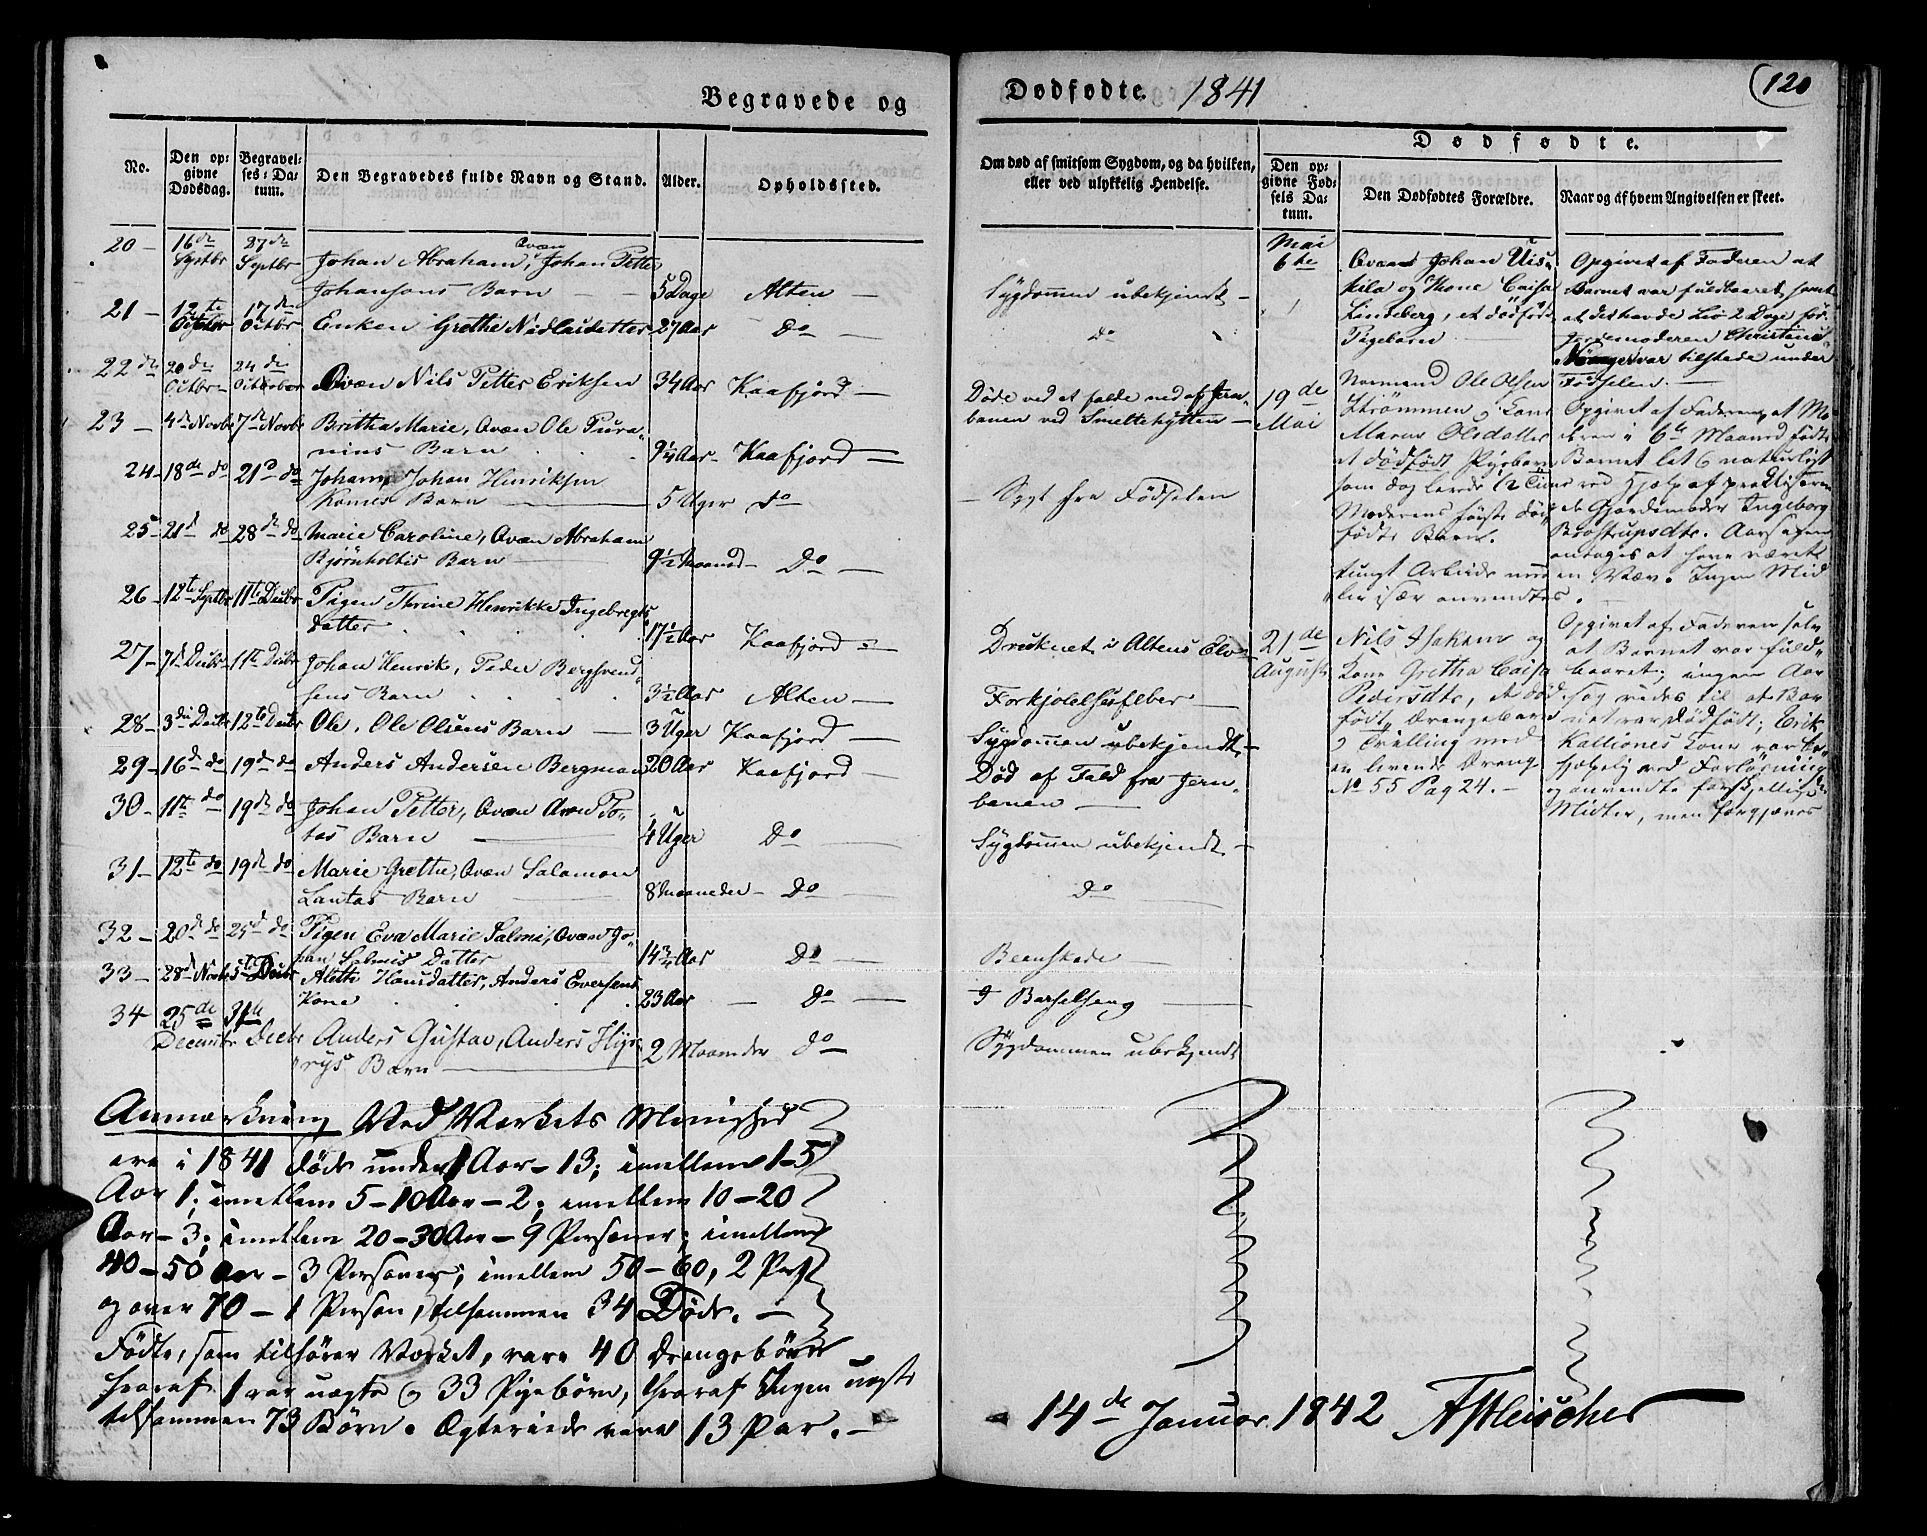 Begravede og
Dødfødte. 1841
120
No.
Den op-
givne
Dødsdag.
Begravel-
ses-Da-
tum.
Den Begravedes fulde Navn og Stand.
Alder.
Opholdssted.
Om død af smitsom Sygdom, og da hvilken,
eller ved ulykkelig Hendelse.
Dødfødte.
Den op-
givne Fød-
sels Da-
tum.
Den Dødfødtes Forældre.
Naar og af hvem Angivelsen er skeet.
20 - 16de Septbr 27de Septbr Johan Abraham, Qvæn Johan Petter
Johansens Barn 5 Dage Alten - Sygdommen ubekjendt -
21 - 12te Octobr 17de Octbr Enken Grethe Nidlasdatter 27 Aar do - do
22de 20de Octbr 24de Octobr Qvæn Nils Petter Eriksen 34 Aar Kaafjord - Døde ved et falde ned af Jern-
banen ved Smeltehytten -
23 - 4de Novbr 7de Novbr Britha Marie, Qvæn Ole Pura-
nins Barn 9¼ Aar - Kaafjord -
24 - 18de do 21de do Johan, Johan Henriksen
Barn 5 Uger do - Sygt fra Fødselen
25 - 21de do 28de do Marie Caroline, Qvæn Abraham
Bjørnholtis Barn 9½ Maaned - do -
26 - 12te Septbr 11te Decbr Pigen Thrine Henrikke Ingebregts
datter 17½ Aar Kaafjord - Drueknet i Altens Elv
27 - 7de Decbr 11te Decbr Johan Henrik, Peder Bergsvend-
sens Barn 3½ Aar Alten - Forkjølelsesfeber -
28 - 3die Decbr 12te Decbr Ole, Ole Olsens Barn - 3 Uger Kaafjord - Sygdommen ubekjendt -
29 - 16de do 19de do Anders Andersen Bergman 20 Aar Kaafjord - Død af Fald fra Jern-
banen -
30 - 11te do 19de do Johan Petter, Qvæn Aron To-
tas Barn 4 Uger do - Sygdommen ubekjendt -
31 - 12te do 19de do Marie Grethe, Qvæn Salamon
Lantas Barn 8 Maaneder - do - do
32 - 20de do 25de do Pigen Eva Marie Salmi, Qvæn Jo-
han Salmis Datter 14¾ Aar do - Beenskade -
33 - 28de Novbr 5te Decbr Alethe Hansdatter, Anders Eversens
Kone 23 Aar - do - I Barselseng -
34 25de December 31te Decbr Anders Gustav, Anders
Barn 2 Maaneder do - Sygdommen ubekjendt
Mai
6te
Qvæn Johan Uis-
kila og Kone Caisa
Lindeberg, et dødfødt
Pigebarn
Opgivet af Faderen at
Barnet var fuldbaaret, samt
at det havde Liv 2 Dage før.
Jordemoderen Christiana
var tilstede under
Fødselen. -
19de
Mai
Normand Ole Olsen
Strømmen og Kone
Maren Olsdatter
et dødfødt Pigebarn
som dog levede 2 Time
Moderens første død-
fødte Barn.
Opgivet af Faderen, at Mo-
deren i 6te Maaned fødte
Barnet let & naturligt
ved Hjelp af praktiserende
Gjordemoder Ingeborg
Brostrupsdtr. Aarsagen
antages at have været
tungt Arbeide med en Væv. Ingen Mid
ler især anvendtes.
21de
August
Nils Isaksen og
Kone Gretha Caisa
Pedersdtr, et død-
født Drengebarn
Tvilling med
en levende Dreng
No 55 Pag 24. -
Opgivet af Faderen selv
at Barnet var fuld-
baaret; ingen Aar-
sag vides til at Bar
net var Dødfødt; Erik
Kalliones Kone var be-
hjelpelig ved Forløsning
og anvendte forskjellige
Midler, men forgjæves
Anmærkning Ved Værkets Menighed
ere i 1841 døde under 1 Aar - 13; imellem 1-5
Aar 1; imellem 5-10 Aar - 2; imellem 10-20
Aar - 3; imellem 20-30 Aar - 9 Personer; imellem
40-50 Aar - 3 Personer; imellem 50-60, 2 Pers
og over 70 - 1 Person, tilsammen 34 Døde. -
Fødte, som tilhører Værket, vare 40 Drengebørn
hvoraf 1 var uægte og 33 Pigebørn, hvoraf Ingen uægte
tilsammen 73 Børn. Ægteviede vare 13 Par. -
14de Januar 1842 A Fleischer